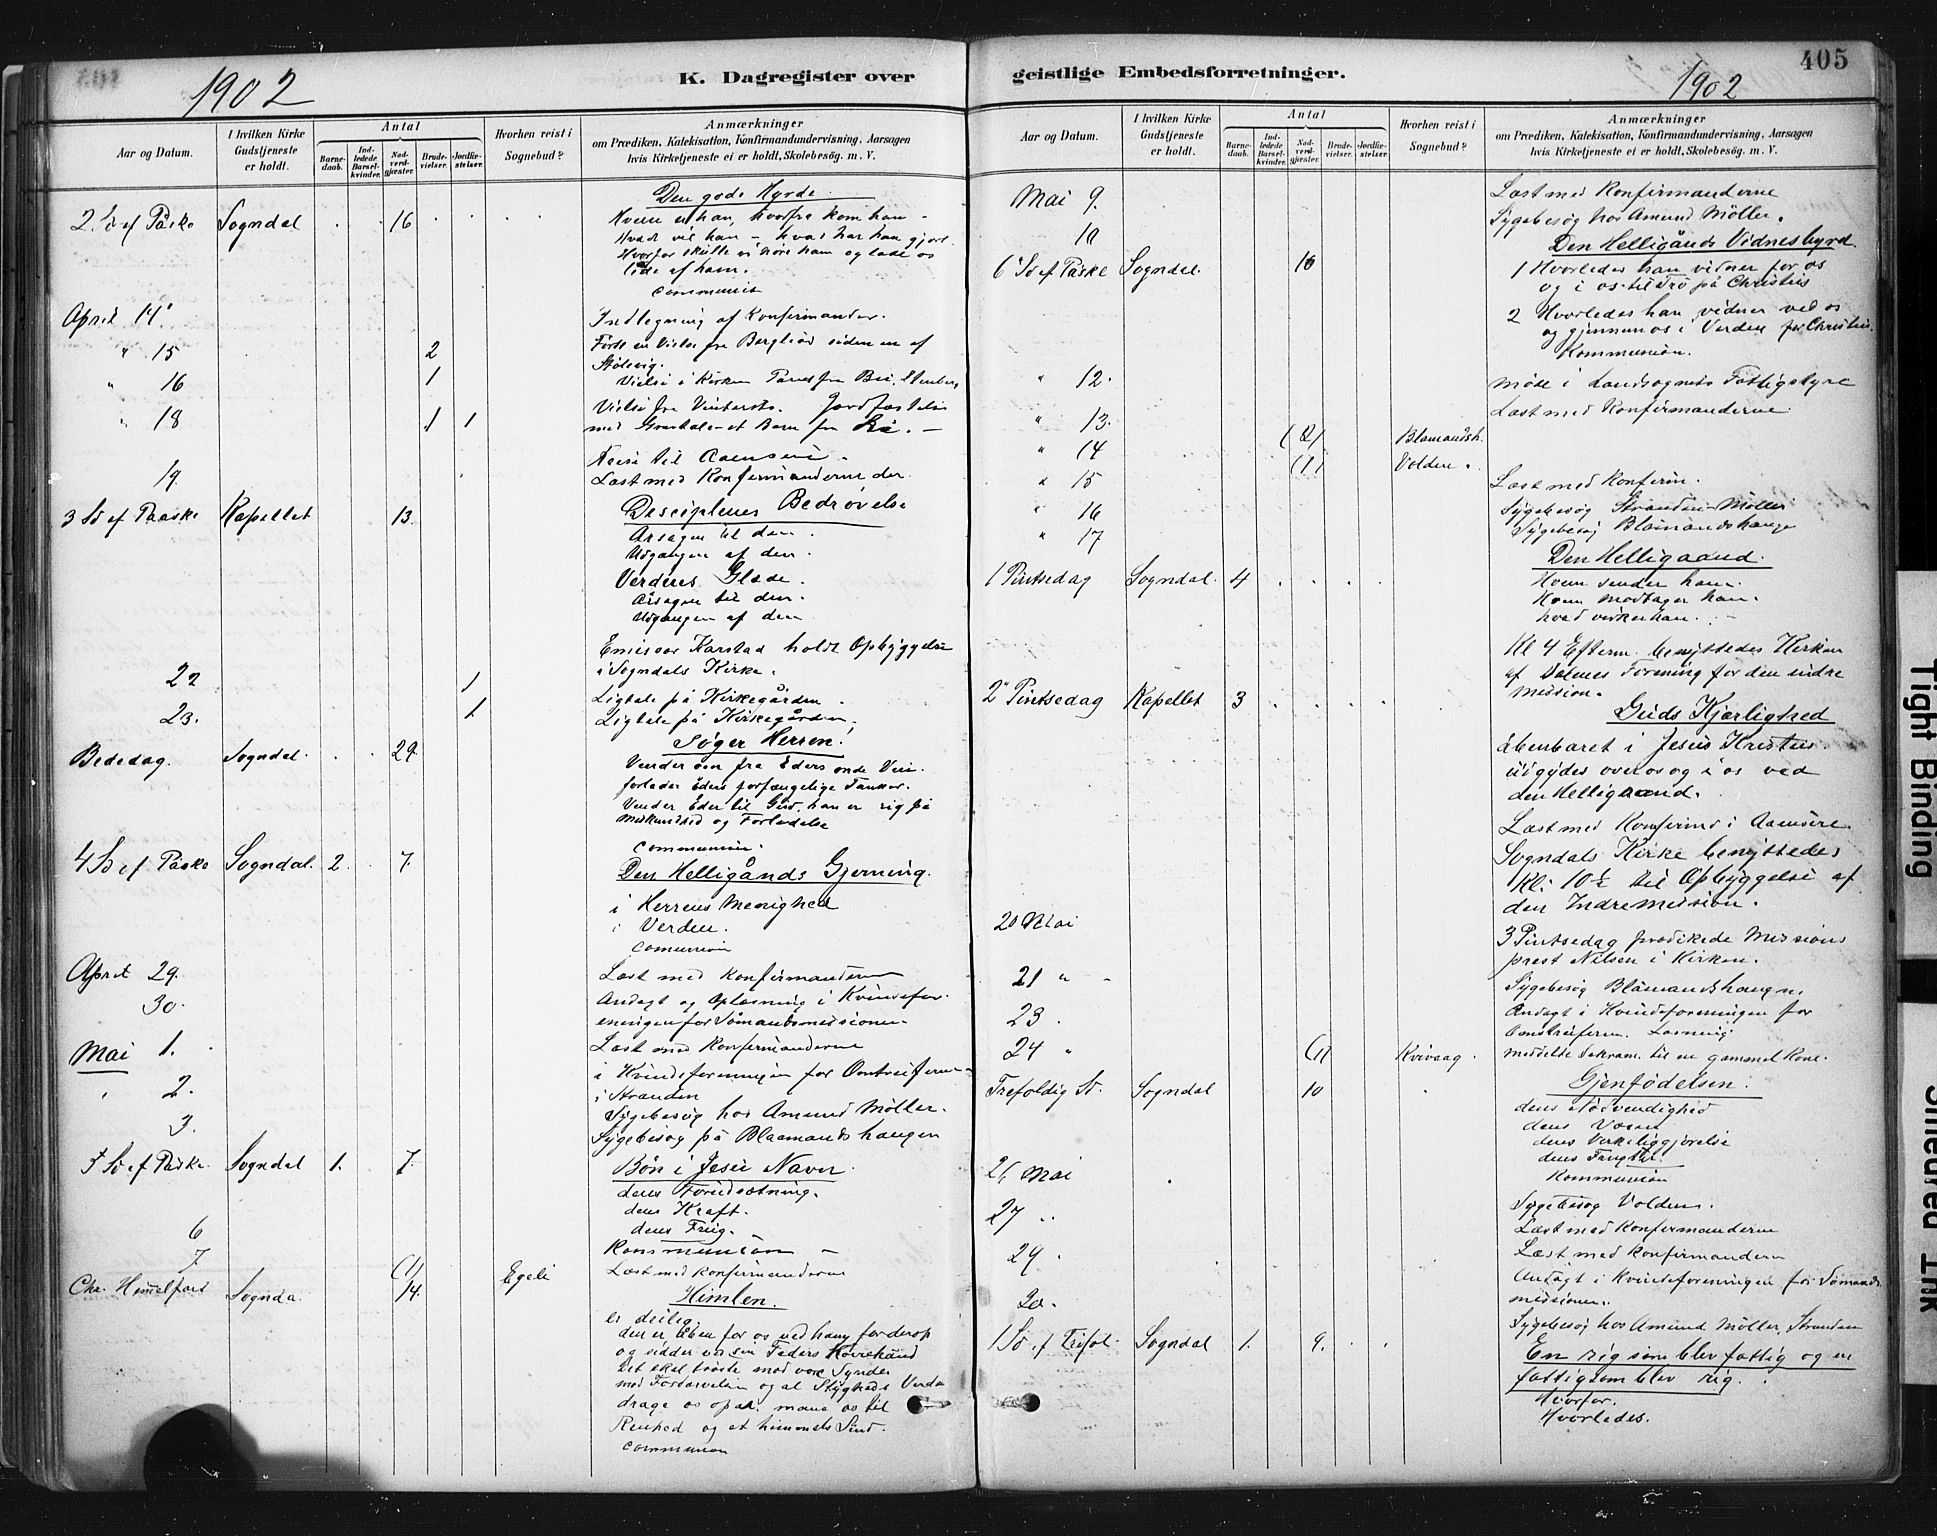 1902
K. Dagregister over
Aar og Datum.
I hvilken Kirke Gudstjeneste er holdt.
Antal
Barnedaab.
Indledede Barselkvinder.
Nadverdgjæster.
Brudevielser.
Jordfæstelser.
Hvorhen reist i Sognebud?
Anmærkninger
om Prædiken, Katekisation, Konfirmandundervisning, Aarsagen
hvis Kirketjeneste ei er holdt, Skolebesøg. m. V.
Den gode Hyrde.
2. Sd ef Påske Sogndal 16 Hvem er han, hvorfra kom han
Hvad vil han – hvad har han gjort
Hvorfor skulle vi høre ham og lade os
lede af ham.
Communion
April 14 Indlegning af Konfirmander.
" 15 2
" 16 1 Vielse i Kirken
" 18 1 1 Jordfæstelse
19 Læst med Konfirmanderne der
3 Sd ef Paaske Kapellet 13. Disciplenes Bedrøvelse
Årsagen til den.
Udgangen af den.
Verdens Glæde.
Årsagen til den.
Udgangen af den
Emissær Karstad holdt Opbyggelse
i Sogndals Kirke.
22 1 Ligtale på Kirkegården
23. 1 Ligtale på Kirkegården
Bededag. Sogndal 29 Søger Herren!
Vender om fra Eders onde Vei
forlader Eders forfængelige Tanker.
Vender Eder til Gud, han er rig på
Miskundhed og Forladelse
Communion.
4 Sd ef Påske Sogndal. 2. 7. Den Helligånds Gjerning.
i Herrens Menighed
i Verden.
Comunion
April 29. Læst med Konfirmanderne
30. Andagt og Oplæsning i Kvindefor
eningen for Sømandsmissionen
Mai 1. Læst med Konfirmanderne
2. i Kvindeforeningen for
i Stranden
3. Sygebesøg hos Amund Møller.
Sygebesøg på Blaamandshaugen
5 Sd ef Påske Sogndal 1. 7. Bøn i Jesu Navn.
dens Forudsætning.
dens Kraft.
dens Frug.
6 Kommunion
7 (1) Egeli Læst med Konfirmanderne
Chr. Himmelfart Sognda 14. Himlen.
er deilig
den er åben for os ved ham
og sidder ved sin Faders høirehånd
Det skal trøste mod vore Synder
drage os op at. mane os til
Renhed og et himmelsk Sind.
Communion
405
geistlige Embedsforretninger.
1902
Aar og Datum.
I hvilken Kirke Gudstjeneste er holdt.
Antal
Barnedaab.
Indledede Barselkvinder.
Nadverdgjæster.
Brudevielser.
Jordfæstelser.
Hvorhen reist i Sognebud?
Anmærkninger
om Prædiken, Katekisation, Konfirmandundervisning, Aarsagen
hvis Kirketjeneste ei er holdt, Skolebesøg. m. V.
Mai 9. Læst med Konfirmanderne
10 Sygebesøg hos Amund Møller.
Den Helligånds Vidnesbyrd.
6 Sd ef Påske Sogndal 1 Hvorledes han vidner for os
og i os til Tro på Christus
2 Hvorledes han vidner ved os
og gjennem os i Verden for Christus.
Kommunion.
" 12. Møde i Landsognets Fattigstyre
" 13. Læst med Konfirmanderne
" 14 (2) Blomandsh.
" 15 (1) Volden. Læst med Konfirm.
" 16 Sygebesøg Stranden Møller
" 17 Sygebesøg Blåmandshaugen
Den Helligaand.
1 Pintsedag Sogndal. 4 Hvem sender ham.
Hvem modtager ham.
hvad virker han.
Kl 4 Efterm. benyttedes Kirken
af Dalenes Forening for den indre
Mission.
2 Pintsedag Kapellet 3 Guds Kjærlighed
åbenbaret i Jesus Kristus
udgydes over os og i os ved
den Helligaand.
Læst med Konfirmd i Aaensire.
Sogndals Kirke benyttedes
Kl. 10½ til Opbyggelse af
den Indremission.
20 Mai 3 Pintsedag prædikede Missions
prest Nilsen i Kirken.
21 " Sygebesøg Blåmandshaugn.
23. Andagt i Kvindeforeningen for
24 " (1) Kvivaag. meddelte Sakram. til en gammel Kone.
Trefoldig Sd. Sogndal 10 Gjenfødelsen.
dens Nødvendighed
dens Væsen
dens Virkeliggjørelse
dens Frugter.
Kommunion
26 Mai Sygebesøg Volden.
27 " Læst med Konfirmanderne
29. Læst med Konfirmandern
Andagt i Kvindeforeningen for Sømands
missionen.
30. Sygebesøg hos Amund Møller, Stranden
1 Sd. f Trefol. Sogndal 1. 9. En rig som blev fattig og en
fattig som blev rig.
Hvorfor.
Hvorledes.
Tight Binding
Smeared Ink